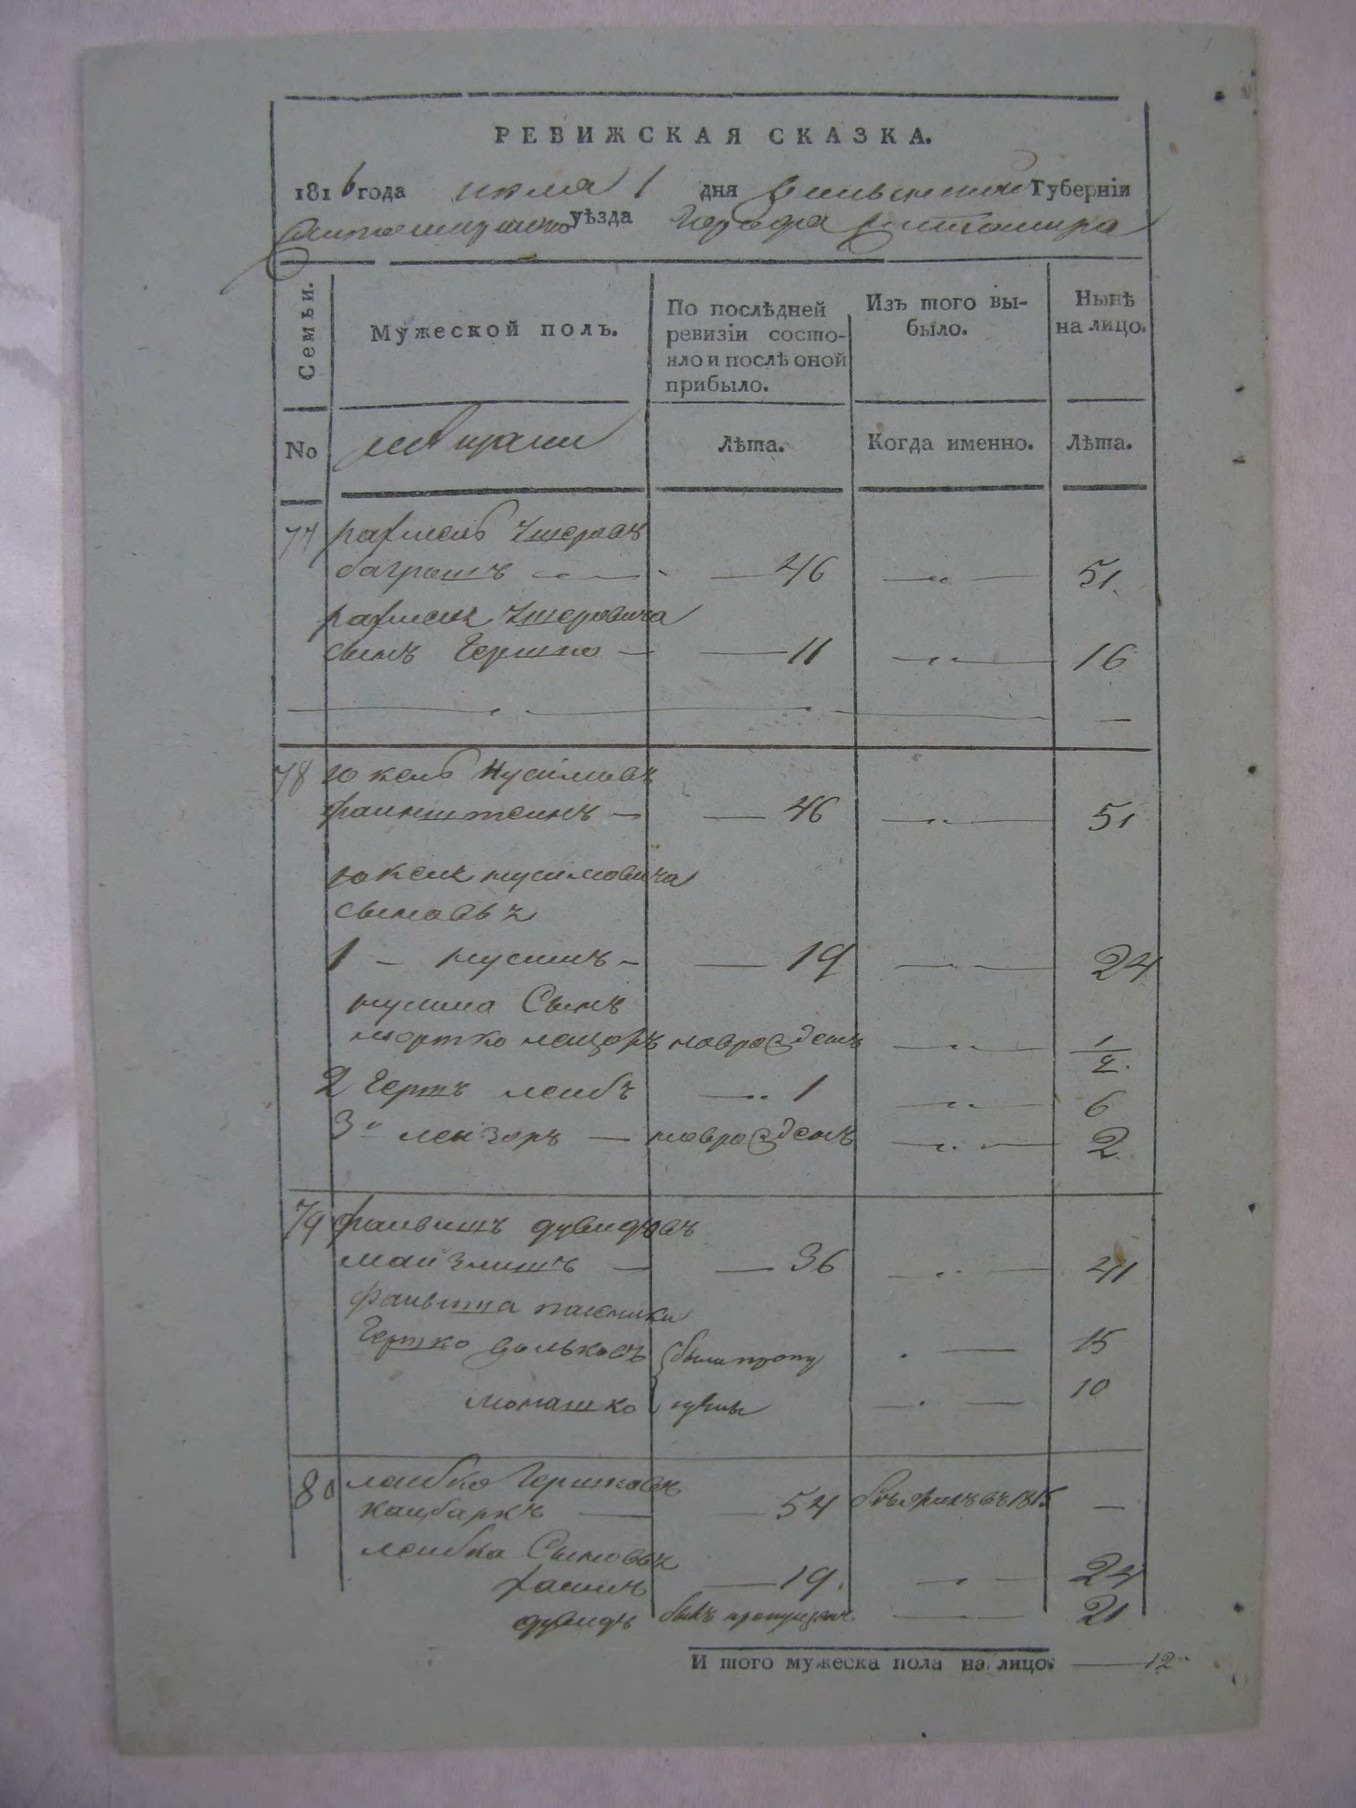 РЕВИЖСКАЯ СКАЗКА.
1816 года июля 1 дня Волынской Губерніи
Житомирского уѣзда Города Житомира
Семьи.
Мужеской полъ.
По послѣдней ревизіи состо-
яло и послѣ оной
прибыло.
Изъ того вы-
было.
Нынѣ
на лицо.
No
мещани
Лѣта.
Когда именно.
Лѣта.
77 рахмель
— 46 — 51
рахмеля
сынъ Гершко — 11 — 16
78 Юкель Нусимовъ
фаинштеинъ — 46 — 51
Юкеля нусимовича
сыновья
1 — нусимъ — 19 — 24
нусима Сынъ
мортко новорожденъ — 1/2.
2 Гершъ леибъ — 1 — 6
3 лейзоръ — новорожденъ — 2
79 фаивишъ дувидовъ
— 36 — 41
фаивиша
Гершко вольковъ были пропу — 15
монашко щены — 10
80 леибко Гершковъ
— 54 въ 1815 —
леибка Сыновья
хаимъ — 19. — 24
дувидъ былъ пропущенъ — 21
И того мужеска пола на лицо. — 12